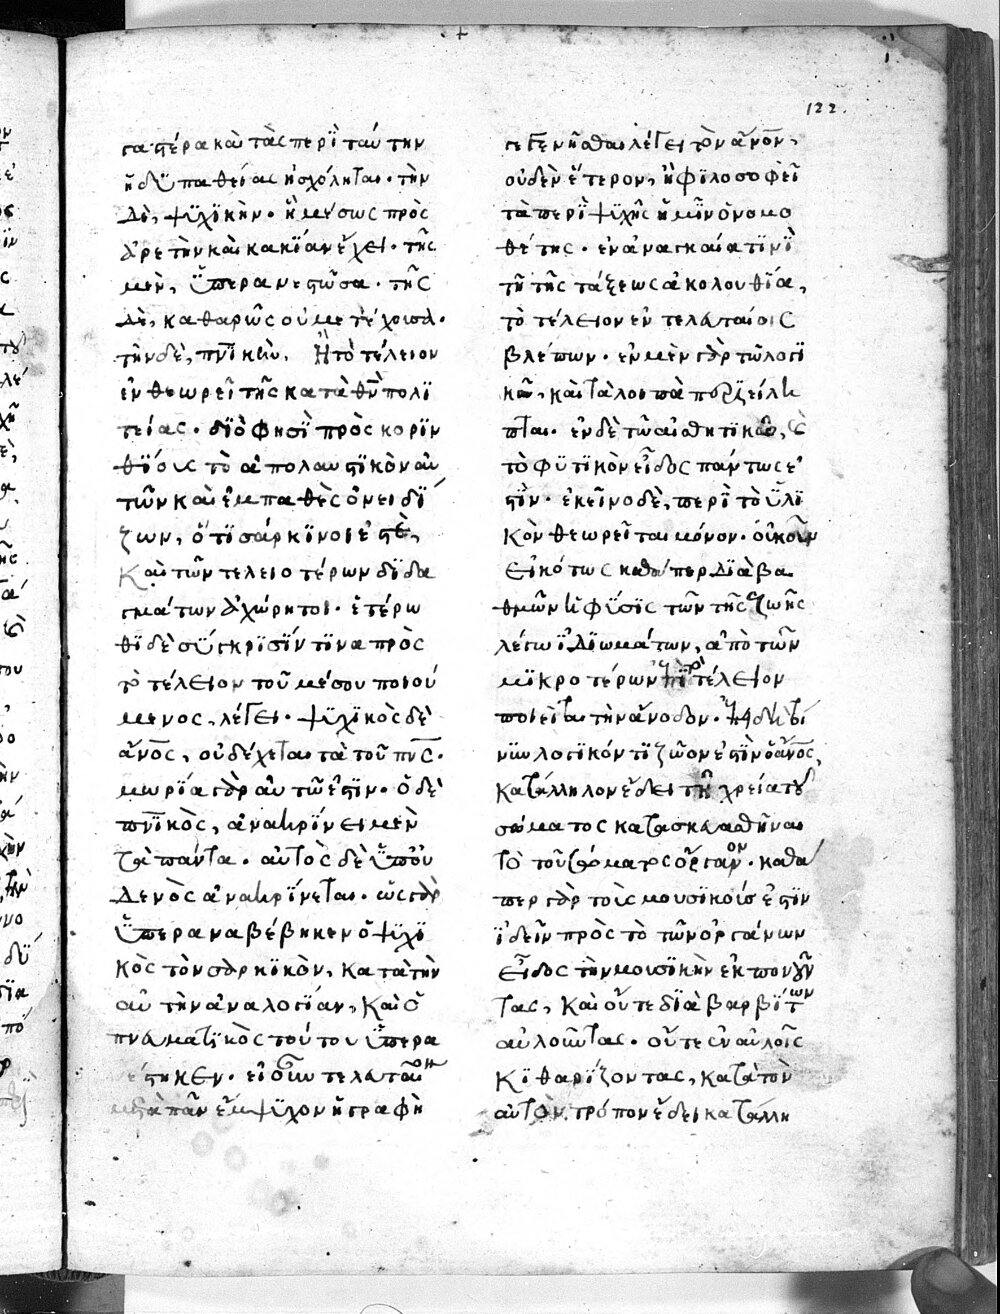 122.
γαστέρα καὶ τὰς περὶ ταύτην
ἡδυπαθείας ἠσχόληται· τὴν
δὲ, ψυχικὴν· ἡ μέσως πρὸς
ἀρετὴν καὶ κακίαν ἔχει· τῆς
μὲν, ὑπερανεστῶσα· τῆς
δὲ, καθαρῶς οὐ μετέχουσα·
τὴν δὲ, πνικὴν, ἣ τὸ τέλειον
ἐνθεωρεῖ τῆς κατὰ θν πολι
τείας· διό φησι πρὸς κοριν
θίοις τὸ ἀπολαυστικὸν αὐ
τῶν καὶ ἐμπαθὲς ὀνειδί
ζων, ὅτι σάρκινοι ἐστὲ,
καὶ τῶν τελειοτέρων διδα
γμάτων ἀχώρητοι· ἑτέρω
θι δὲ σύγκρισίν τινα πρὸς
τὸ τέλειον τοῦ μέσου ποιού
μενος, λέγει· ψυχικὸς δὲ
ἄνος, οὐ δέχεται τὰ τοῦ πνς·
μωρία γὰρ αὐτῶ ἐστιν· ὁ δὲ
πνικὸς, ἀνακρίνει μὲν
τὰ πάντα· αὐτὸς δὲ ὑπ' οὐ
δενὸς ἀνακρίνεται· ὡς γὰρ
ὑπεραναβέβηκεν ὁ ψυχι
κὸς τὸν σαρκικὸν, κατὰ τὴν
αὐτὴν ἀναλογίαν, καὶ ὁ
πνευματικὸς τούτου ὑπερα
νέστηκεν· εἰ οὖν τελευταῖον
μετὰ πᾶν ἔμψυχον ἡ γραφὴ
γεγενῆσθαι λέγει τὸν ἄνον,
οὐδὲν ἕτερον, ἢ φιλοσοφεῖ
τὰ περὶ ψυχῆς ἡμῖν ὁ νομο
θέτης· ἐν ἀναγκαία τινὶ
τῆ τῆς τάξεως ἀκολουθία,
τὸ τέλειον ἐν τελευταίοις
βλέπων· ἐν μὲν γὰρ τῶ λογι
κῶ, καὶ τὰ λοιπὰ περιείλη
πται· ἐν δὲ τῶ αἰσθητικῶ, καὶ
τὸ φυτικὸν εἶδος πάντως ἐ
στὶν· ἐκεῖνο δὲ, περὶ τὸ ὑλι
κὸν θεωρεῖται μόνον· οὐκοῦν
εἰκότως καθάπερ διὰ βα
θμῶν ἡ φύσις τῶν τῆς ζωῆς
λέγω ἰδιωμάτων, ἀπὸ τῶν
μικροτέρων ἐπὶ τὸ τέλειον
ποιεῖται τὴν ἄνοδον·
νῦν λογικόν τι ζῶον ἐστὶν ὁ ἄνος,
κατάλληλον ἔδει τῆ χρεία τοῦ
σώματος κατασκευασθῆναι
τὸ τοῦ σώματος ὄργανον· καθά
περ γὰρ τοῖς μουσικοῖς ἐστιν
ἰδεῖν πρὸς τὸ τῶν ὀργάνων
εἶδος τὴν μουσικὴν ἐκπονοῦν
τας, καὶ οὔτε διὰ βαρβίτων
αὐλοῦντας· οὔτε ἐν αὐλοῖς
κιθαρίζοντας, κατὰ τὸν
αὐτὸν τρόπον ἔδει κατάλλη